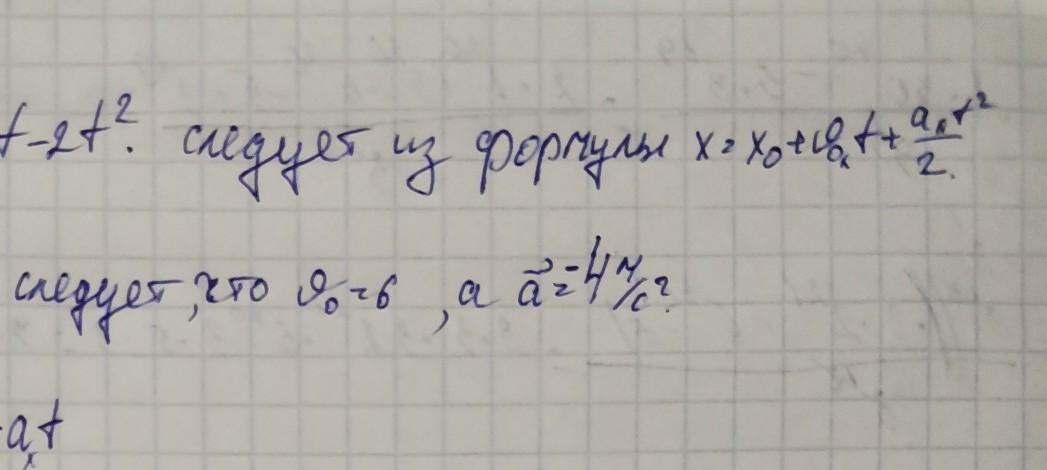 t-2t². следует из формулы x=x₀+υ₀ₓt+aₓt²/2.
следует, что υ₀=6, а a⃗=-4 м/с².
aₓt